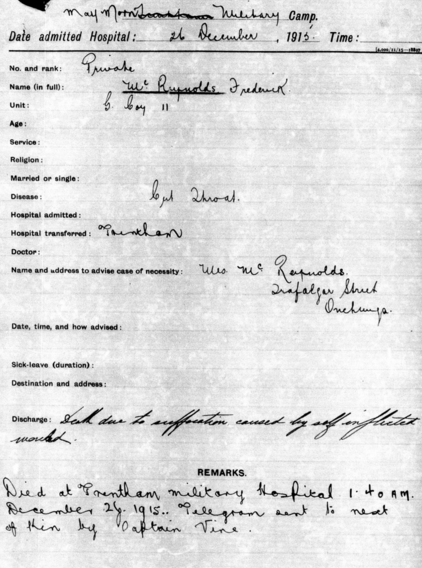 May Morn Military Camp.
Date admitted Hospital: 26 December, 1915 Time:
No. and rank: Private
Name (in full): Mc Reynolds Frederick
Unit: G. Coy 11
Age:
Service:
Religion:
Married or single:
Disease: Cut Throat.
Hospital admitted:
Hospital transferred: Trentham
Doctor:
Name and address to advise case of necessity: Mrs Mc Reynolds.
Trafalgar Street
Onehunga.
Date, time, and how advised:
Sick-leave (duration):
Destination and address:
Discharge: Death due to suffocation caused by self inflicted
wounds.
REMARKS.
Died at Trentham military Hospital 1.40 AM.
December 1915.. Telegram sent to next
of kin by Captain Vine.